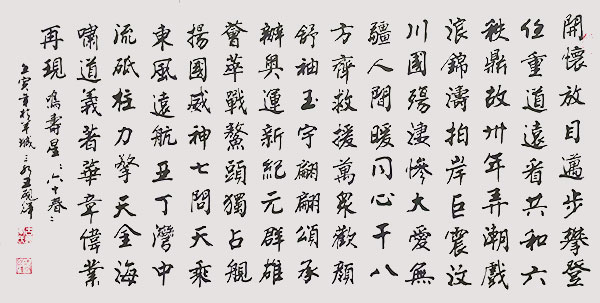 開懷放目邁步攀登
任重道遠看共和六
秩鼎故卅年弄潮戲
浪錦濤拍岸巨震汶
川國殤淒慘大愛無
疆人間暖同心八
方齊救援萬眾歡顏
舒袖玉宇翩翩頌承
辦奧運新紀元群雄
薈萃戰鰲頭獨占觀
揚國威神七問天乘
東風遠航亞丁灣中
流砥柱力擎天金海
嘯道義者華章偉業
再現 壽星 六十春